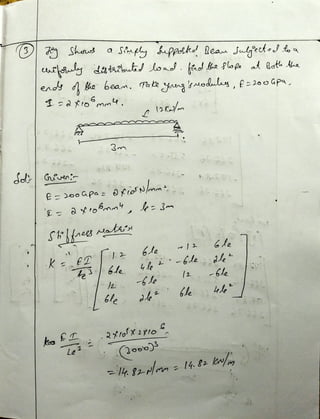 ③ Fig Shows a Simply Supported Beam Subjected to a
uniformly distributed load. find the slope at Both the
ends of the beam. Take young's modulus, E=200GPa,
I = 2 x 10⁶ mm⁴.
12 kN/m
3m
Sol: Given:-
E = 200GPa = 2x10⁵ N/mm²
I = 2 x 10⁶ mm⁴, le = 3m
Stiffness Matrix
K = EI/le³ [ 12 6le -12 6le
6le 4le² -6le 2le²
12 -6le 12 -6le
6le 2le² 6le 4le² ]
EI/le³ = 2x10⁵ x 2x10⁶ / (3000)³
= 14.82 N/mm = 14.82 kN/m